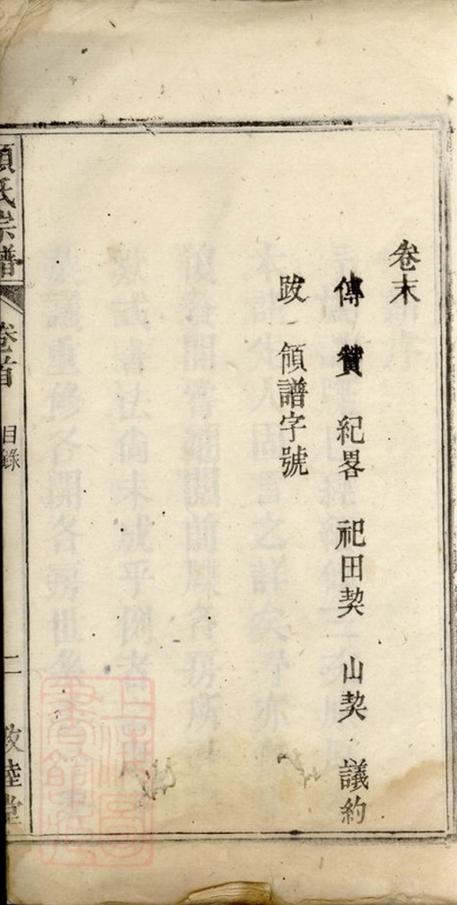 卷末
傳 贊 紀畧 祀田契 山契 議約
跋 領譜字號
氏宗譜 卷首 目錄 二 敦睦堂